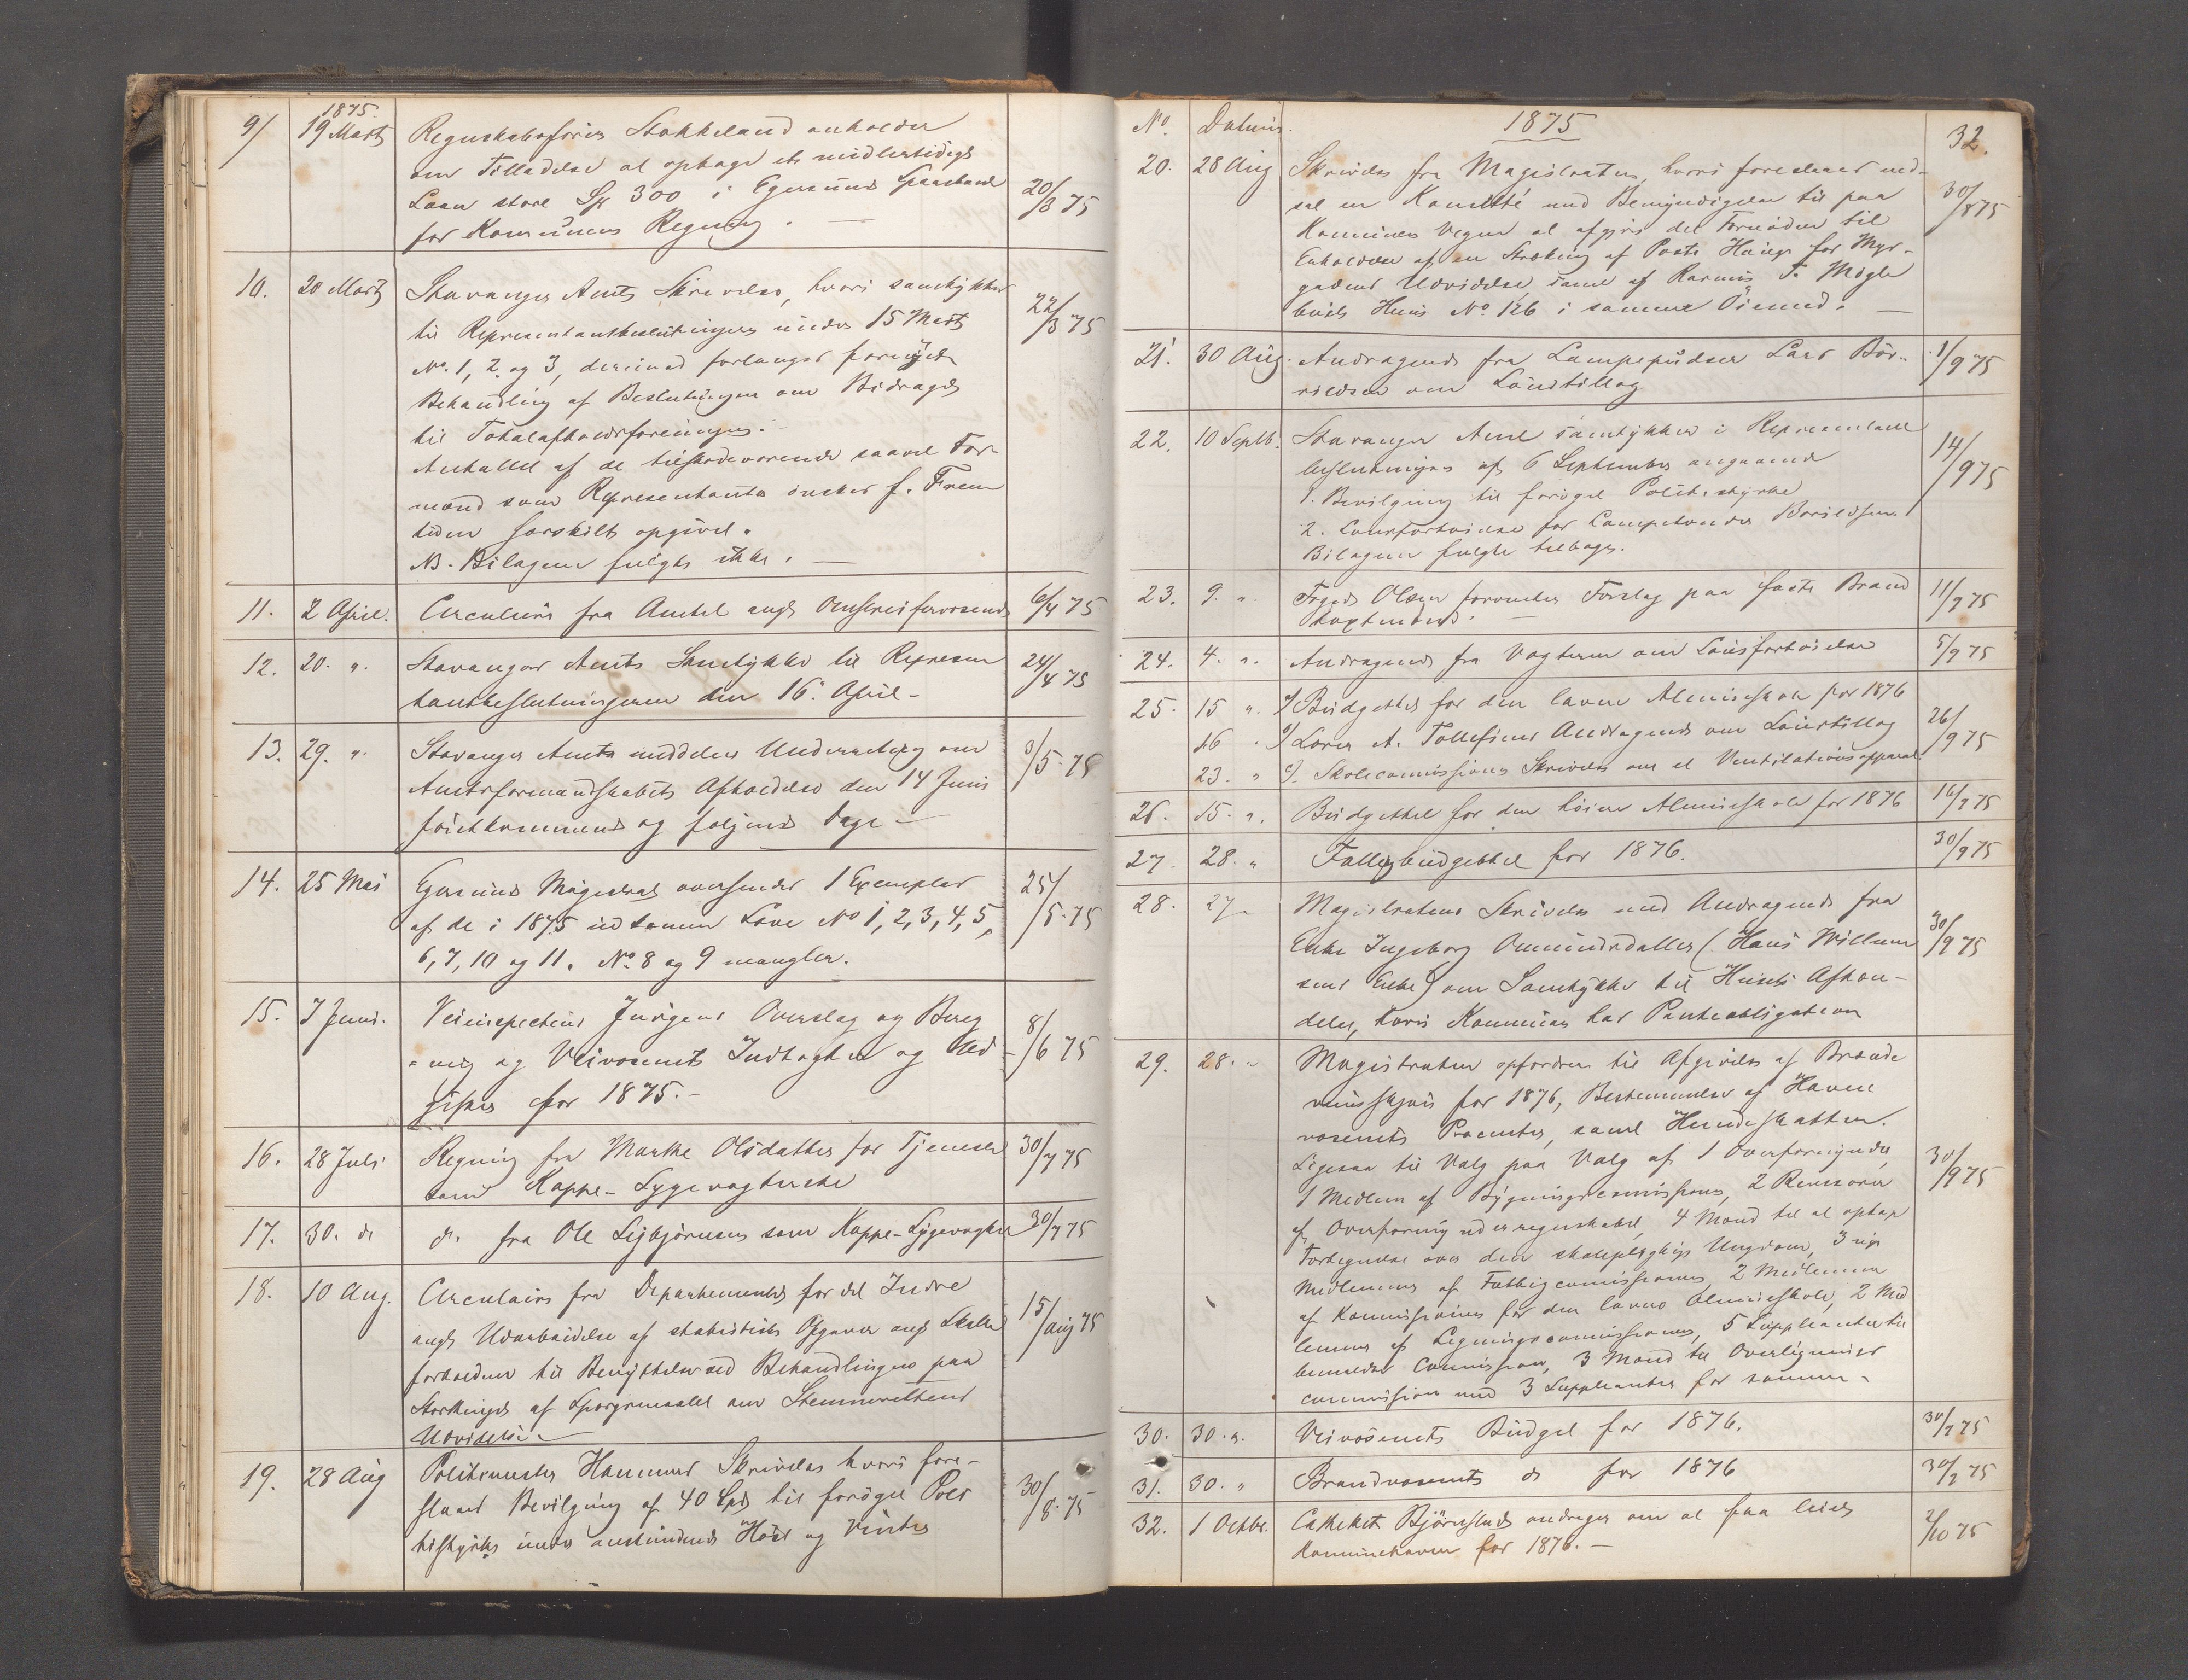 1875.
9/ 19 Marts Regnskabsfører Stokkeland anholder
om Tilladelse at optage et midlertidigt
Laan stort Sp 300 i Egersunds Sparebank 20/3 75
for Kommunens Regning. —
10. 20 Marts Stavanger Amts Skrivelse, hvori samtykkes
til Repræsentantbeslutninger under 15 Marts 22/3 75
No. 1, 2 og 3, derimod forlanges fornyet
Behandling af Beslutningen om Bidraget
til Totalafholdsforeningen.
Antallet af de tilstedeværende saavel For-
mænd som Repræsentanter ønskes f. Frem
tiden særskilt opgivet.
NB. Bilagene fulgte ikke. —
11. 2 April. Circulære fra Amtet angd. 6/4 75
12. 20. " Stavanger Amts Samtykke til Repræsen
tantbeslutningerne den 16. April - 24/4 75
13. 29. " Stavanger Amt meddeler Underretning om
Amtsformandskabets Afholdelse den 14 Juni 3/5 75
førstkommende og følgende Dage —
14. 25 Mai Egersunds Magistrat oversender 1 Exemplar
af de i 1875 udkomne Love No 1, 2, 3, 4, 5, 25/5 75
6, 7, 10 og 11. No. 8 og 9 mangler.
15. 7 Juni. Veiinspecteur Jürgens Overslag og Bereg
ning og Veivæsenets Indtægter og Ud- 8/6 75
gifter for 1875. -
16. 28 Juli Regning fra Marthe Olsdatter for Tjeneste 30/7 75
som Koppe-Sygevogterske
17. 30. do do. fra Ole Sigbjørnsen som Koppe-Sygevogter 30/7 75
18. 10 Aug. Circulaire fra Departementet for det Indre
angd. Udarbeidelse af statistiske Opgaver angd. Skatte 15/aug 75
forholdene til Benyttelse ved Behandlingen paa
Storthinget af Spørgsmaalet om Stemmerettens
Udvidelse. —
19. 28 Aug Politimester Hammers Skrivelse hvori fore-
slaaes Bevilgning af 40 Spd til forøget Poli 30/8 75
tistyrke under anstundende Høst og Vinter
No. Datum. 1875 32.
20. 28 Aug Skrivelse fra Magistraten, hvori foreslaaes ned-
sat en Komitté med Bemyndigelse til paa 30/8 75
Kommunens Vegne at afgjøre det Fornødne til
Erholdelse af en Strækning af Poste Haug for Myr-
gadens Udvidelse, samt af Rasmus T. Møgle
buds Huus No 126 i samme Øiemed. —
21. 30 Aug. Andragende fra Lampepudser Lars Bør- 1/9 75
rildsen om Løntillæg
22. 10 Septb. Stavanger Amt samtykker i Repræsentant
beslutninger af 6 September angaaende 14/9 75
1. Bevilgning til forøget Politistyrke
2. Lønsforhøielse for Lampetænder Borildsen.
Bilagene fulgte tilbage.
23. 9. " Foged Olsen forventer Forslag paa faste Brand 11/9 75
24. 4. " Andragende fra Vægterne om Lønsforhøielse 5/9 75
25. 15 " a) Budgettet for den lavere Almueskole for 1876
16 " b) Lærer A. Tollefsens Andragende om Lønstillæg 26/9 75
23. " c). Skolecommissionens Skrivelse om et Ventilationsapparat.
26. 15. ". Budgettet for den høiere Almueskole for 1876 16/9 75
27 28. " Fattigbudgettet for 1876. 30/9 75
28. 27 - Magistratens Skrivelse med Andragende fra
Enke Ingeborg Ommundsdatter (Hans Willum 30/9 75
sens Enke) om Samtykke til Husets Afhæn-
delse, hvori Kommunen har Panteobligation
29. 28. " Magistraten opfordrer til Afgivelse af Brænde
viinsskjøn for 1876, Bestemmelse af Havne
væsenets Procenter, samt Hundeskatten.
Ligesaa til Valg paa Valg af 1 Overformynder, 30/9 75
1 Medlem af Bygningscommissionen, 2 Revisorer
af Overformynderregnskabet, 4 Mænd til at optage
Fortegnelse over den skolepligtige Ungdom, 3
Medlemmer af Fattigcommissionen, 2 Medlemmer
af Kommissionen for den lavere Almueskole, 2 Med
lemmer af Ligningscommissionen, 5 Suppleanter til
bemeldte Commission, 3 Mænd til Overlignings
commission med 3 Suppleanter for samme -
30. 30. ". Veivæsenets Budget for 1876. 30/9 75
31. 30. " Brandvæsenets do for 1876 30/9 75
32. 1 Octbr. Cathekét Bjørnflads andrager om at faa leiet
for 1876. — 2/10 75